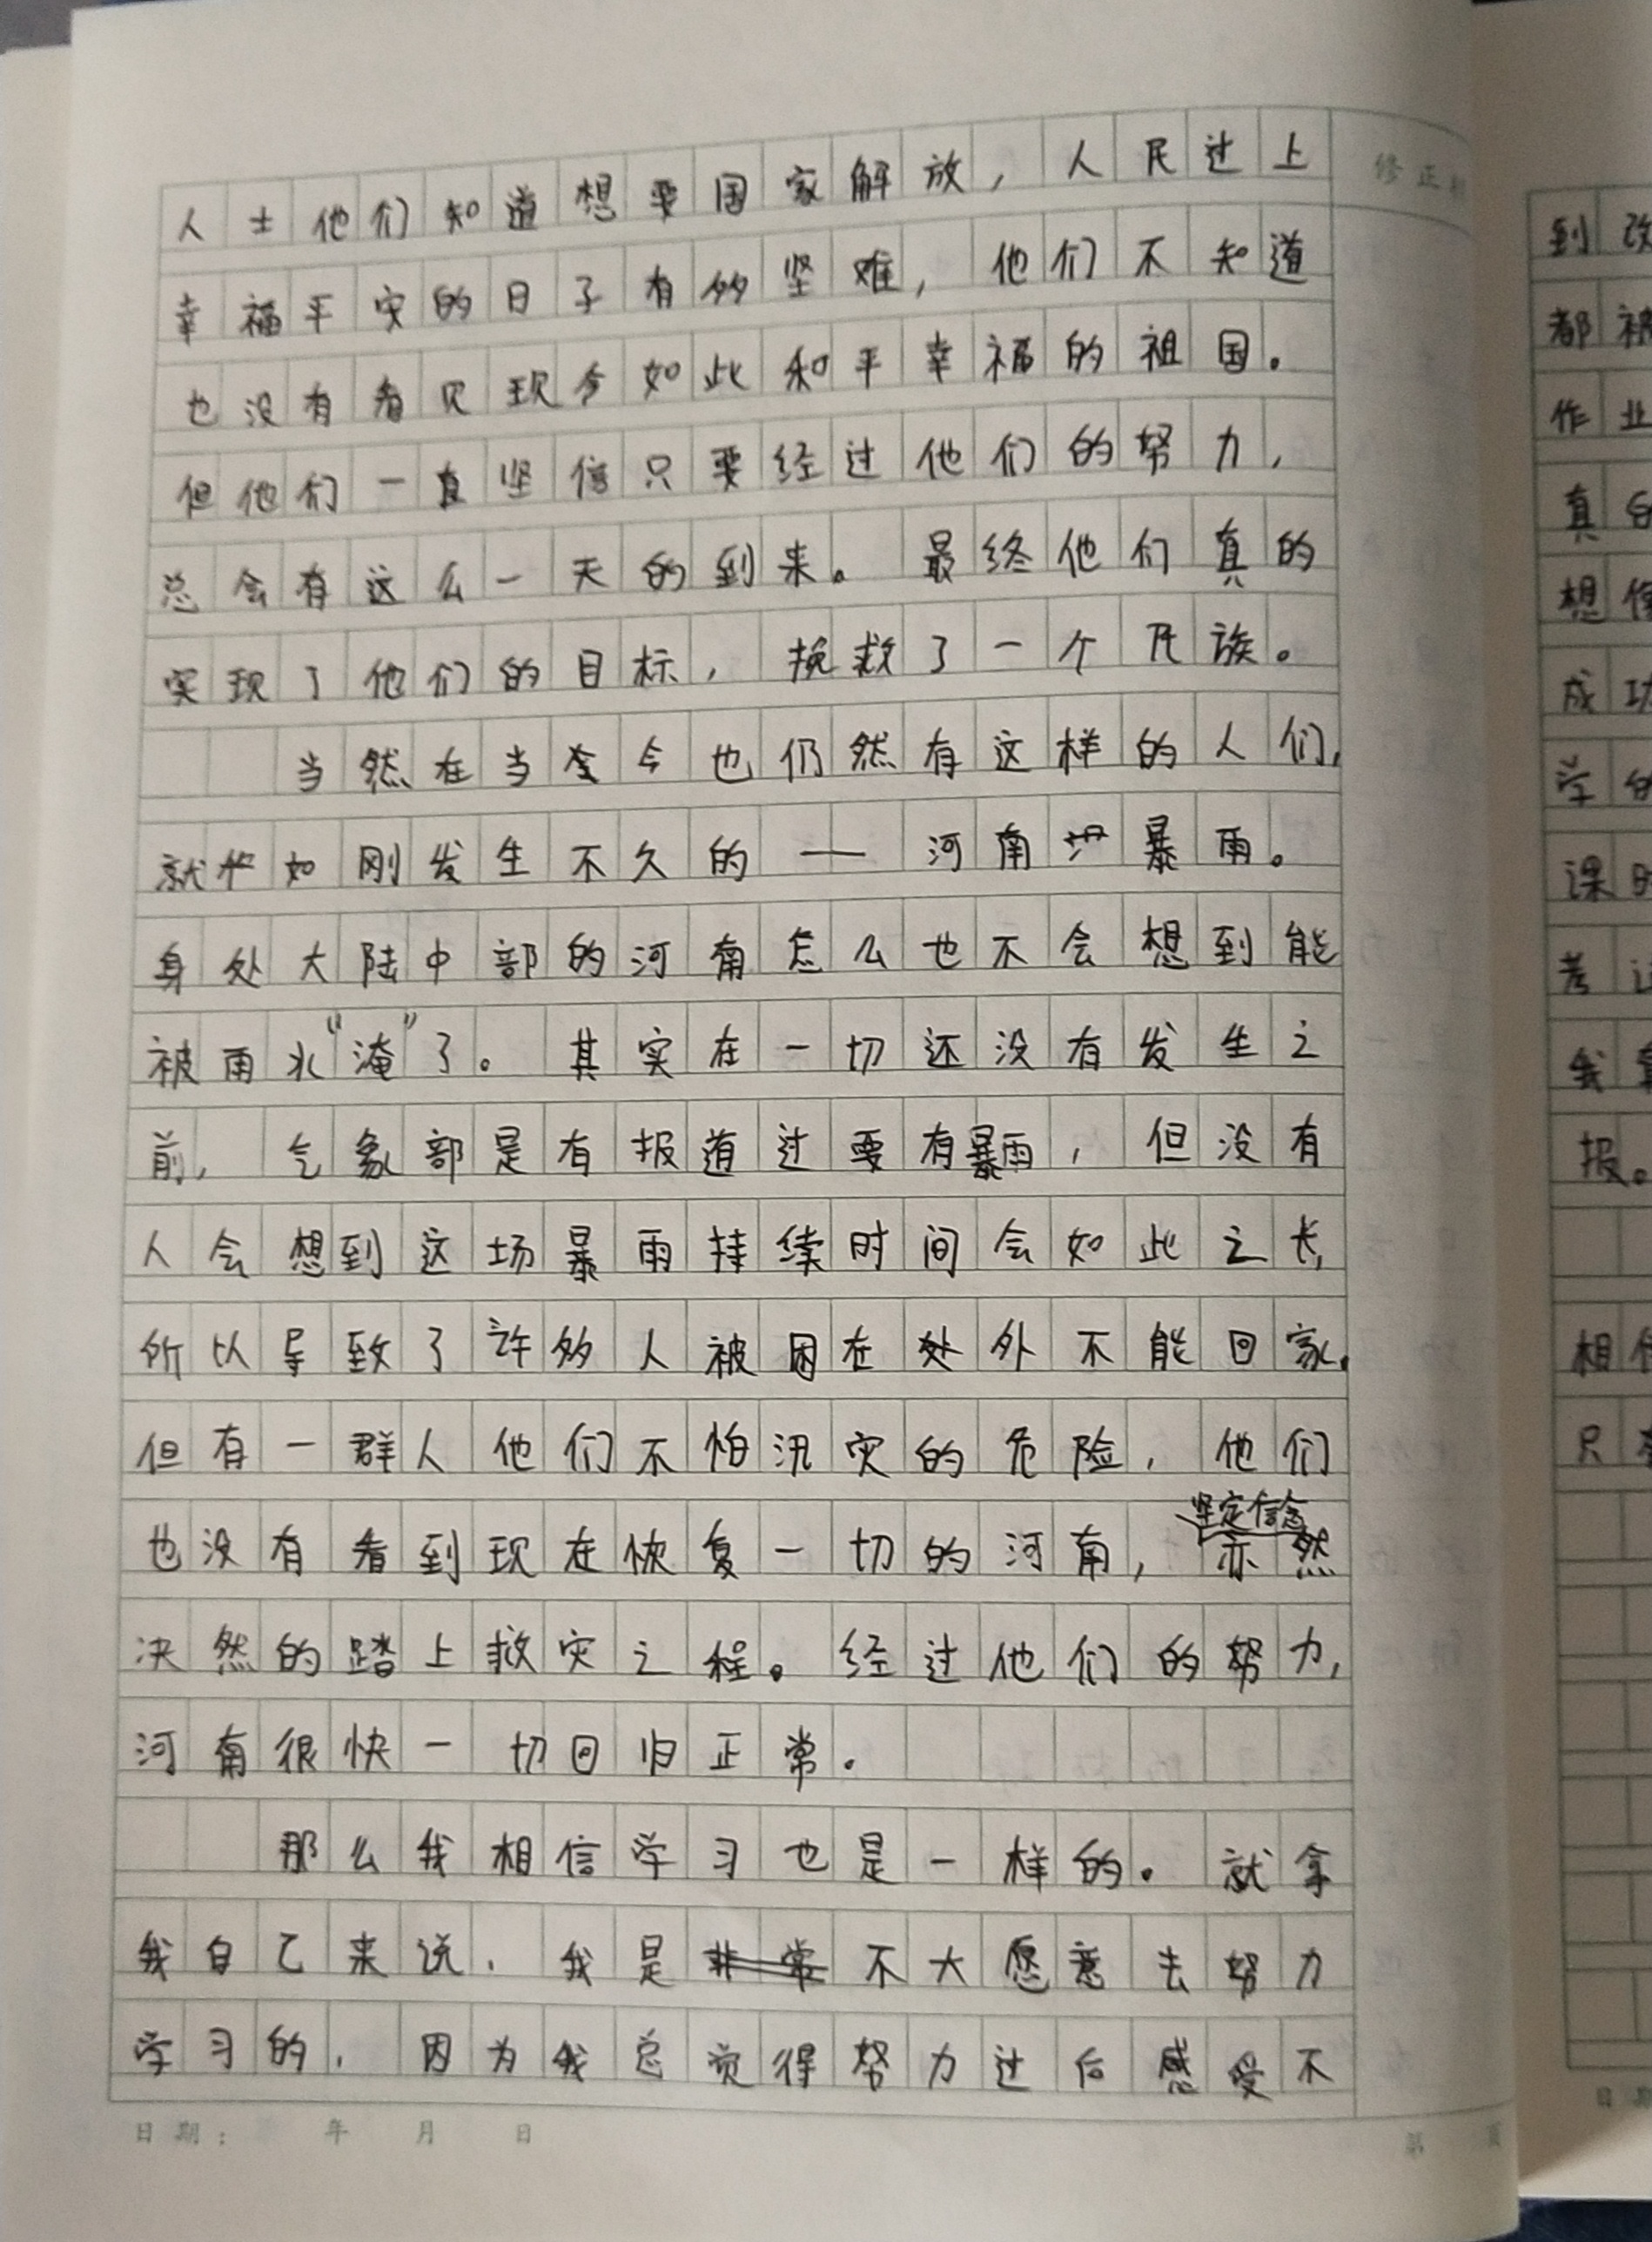 修正
人士他们知道想要国家解放，人民过上
幸福平安的日子有多坚难，他们不知道
也没有看见现今如此和平幸福的祖国。
但他们一直坚信只要经过他们的努力，
总会有这么一天的到来。最终他们真的
实现了他们的目标，挽救了一个民族。
当然在当今也仍然有这样的人们，
就如刚发生不久的——河南暴雨。
身处大陆中部的河南怎么也不会想到能
被雨水“淹”了。其实在一切还没有发生之
前，气象部是有报道过要有暴雨，但没有
人会想到这场暴雨持续时间会如此之长，
所以导致了许多人被困在外不能回家。
但有一群人他们不怕汛灾的危险，他们
也没有看到现在恢复一切的河南，坚定信念亦然
决然的踏上救灾之程。经过他们的努力，
河南很快一切回归正常。
那么我相信学习也是一样的。就拿
我自己来说，我是不大愿意去努力
学习的，因为我总觉得努力过后感受不
日期： 年 月 日
第 页
到改
都被
作业
真
想
成功
学的
课时
考
我
报。
相信
只有
日期